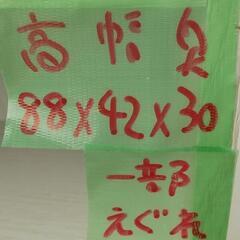 高 幅 奥
88×42×30
一部
えぐれ